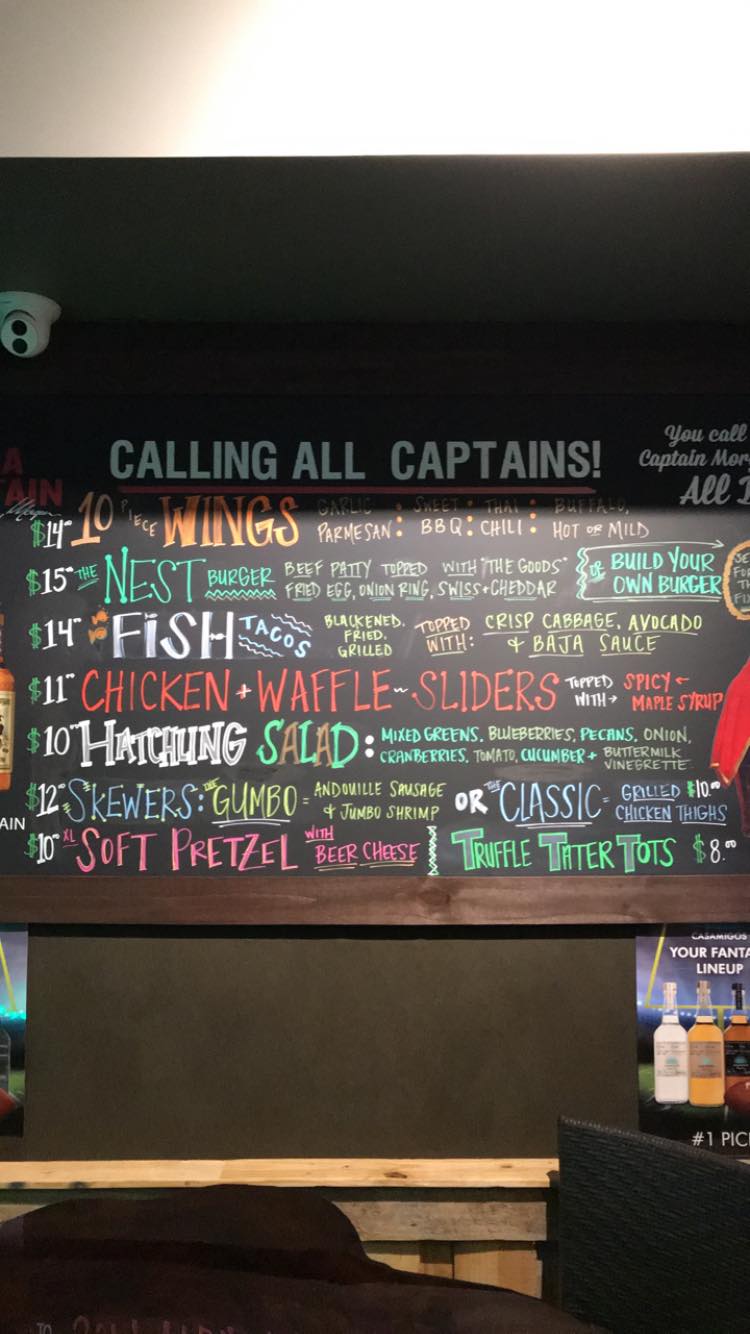 You call
CALLING ALL CAPTAINS!
Captain Mor
All
$14 10 PIECE WINGS GARLIC PARMESAN: SWEET BBQ: THAI CHILI: BUFFALO, HOT OR MILD
$15 THE NEST BURGER BEEF PATTY TOPPED WITH "THE GOODS"
FRIED EGG, ONION RING, SWISS + CHEDDAR
OR BUILD YOUR
OWN BURGER
$14 FISH TACOS BLACKENED, FRIED, GRILLED TOPPED WITH: CRISP CABBAGE, AVOCADO
+ BAJA SAUCE
$11 CHICKEN + WAFFLE SLIDERS TOPPED WITH → SPICY
MAPLE SYRUP
$10 HATCHLING SALAD: MIXED GREENS, BLUEBERRIES, PECANS, ONION,
CRANBERRIES, TOMATO, CUCUMBER + BUTTERMILK
VINEGRETTE
$12 SKEWERS: THE GUMBO = ANDOUILLE SAUSAGE
+ JUMBO SHRIMP
OR THE CLASSIC = GRILLED $10.00
CHICKEN THIGHS
AIN
$10 XL SOFT PRETZEL WITH BEER CHEESE
TRUFFLE TATER TOTS $8.00
CASAMIGOS
YOUR FANTA
LINEUP
#1 PIC